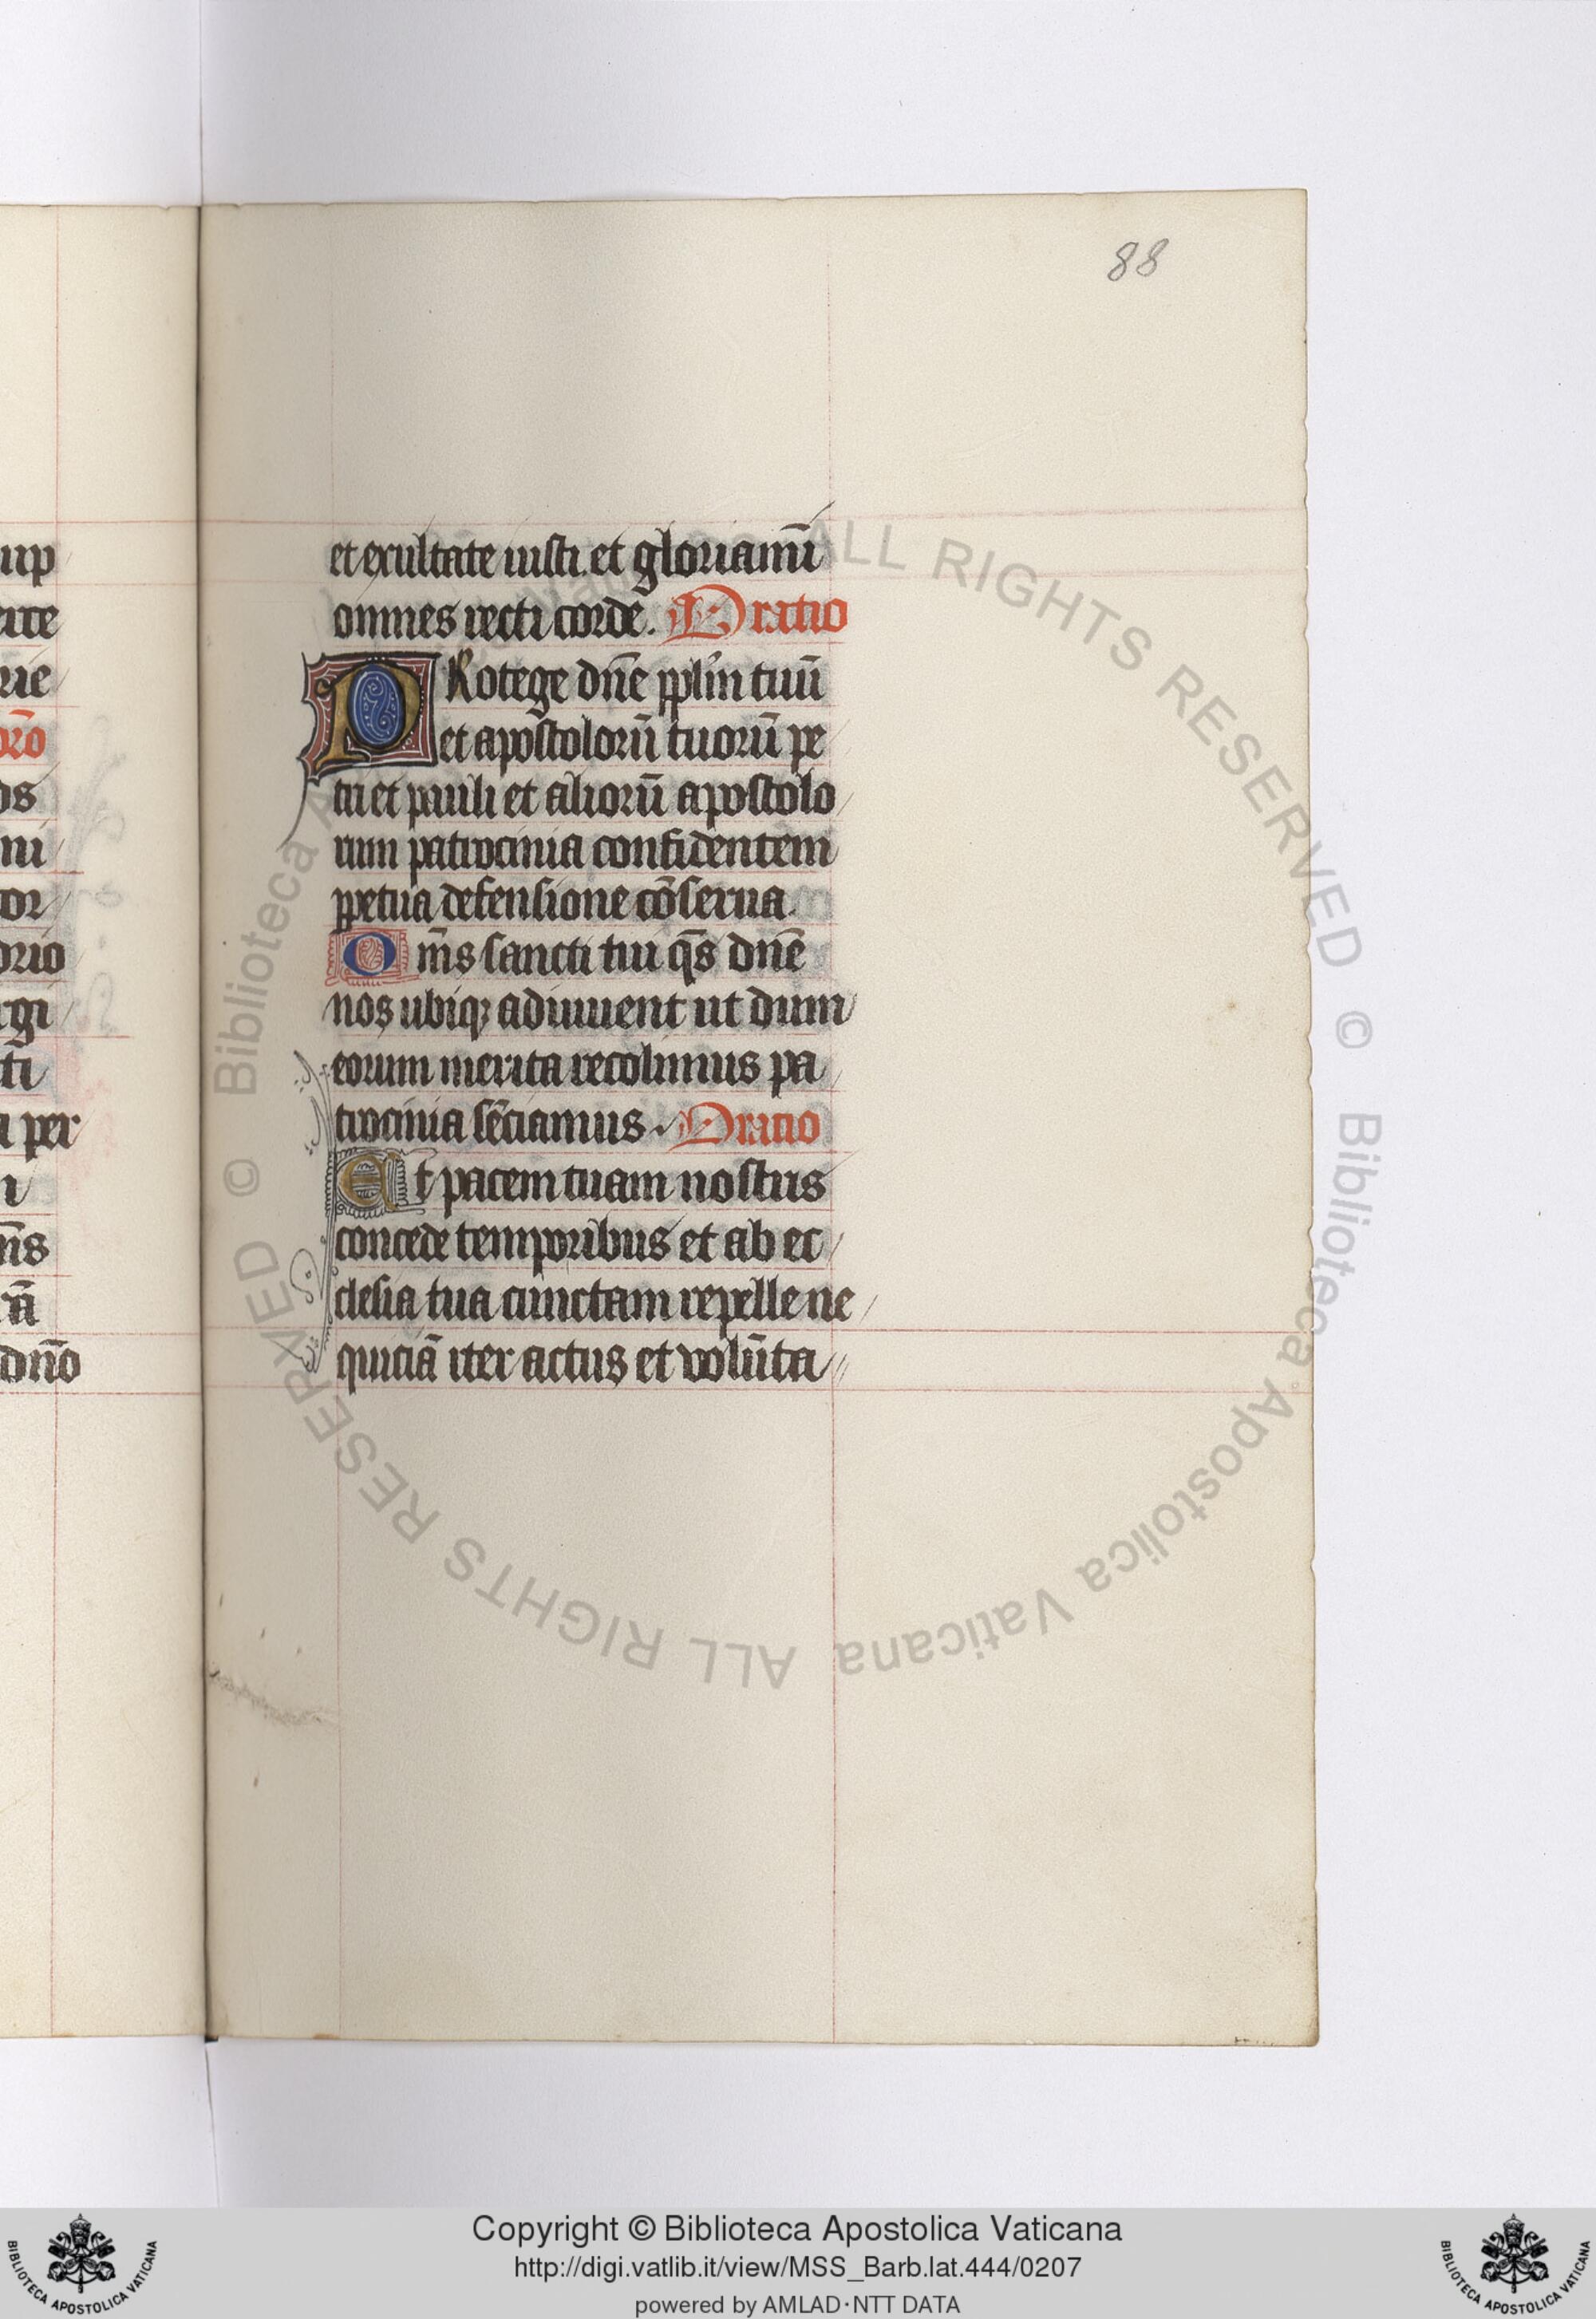 88
et exultate iusti. et gloriami̅
omnes recti corde. Oratio
PRotege dn̅e ꝓplm̅ tuu̅
et apostoloru̅ tuoru̅ pe
tri et pauli et alioru̅ apostolo
rum patrocinia confidentem
ꝑpetua defensione co̅serua.
Om̅s sancti tui qs̅ dn̅e
nos ubiqꝫ adiuuent ut dum
eorum merita recolimus pa
trocinia se̅ciamus. Oratio
Et pacem tuam nostris
concede temporibus et ab ec
clesia tua cunctam repelle ne
quicia̅ iter actus et volu̅ta
up
rie
oro̅
ds
ni
tor
orio
rgi
ti̅
per
n̅s
dn̅o
© Biblioteca Apostolica Vaticana ALL RIGHTS RESERVED
© Biblioteca Apostolica Vaticana ALL RIGHTS RESERVED
Copyright © Biblioteca Apostolica Vaticana
http://digi.vatlib.it/view/MSS_Barb.lat.444/0207
powered by AMLAD·NTT DATA
BIBLIOTECA APOSTOLICA VATICANA
BIBLIOTECA APOSTOLICA VATICANA